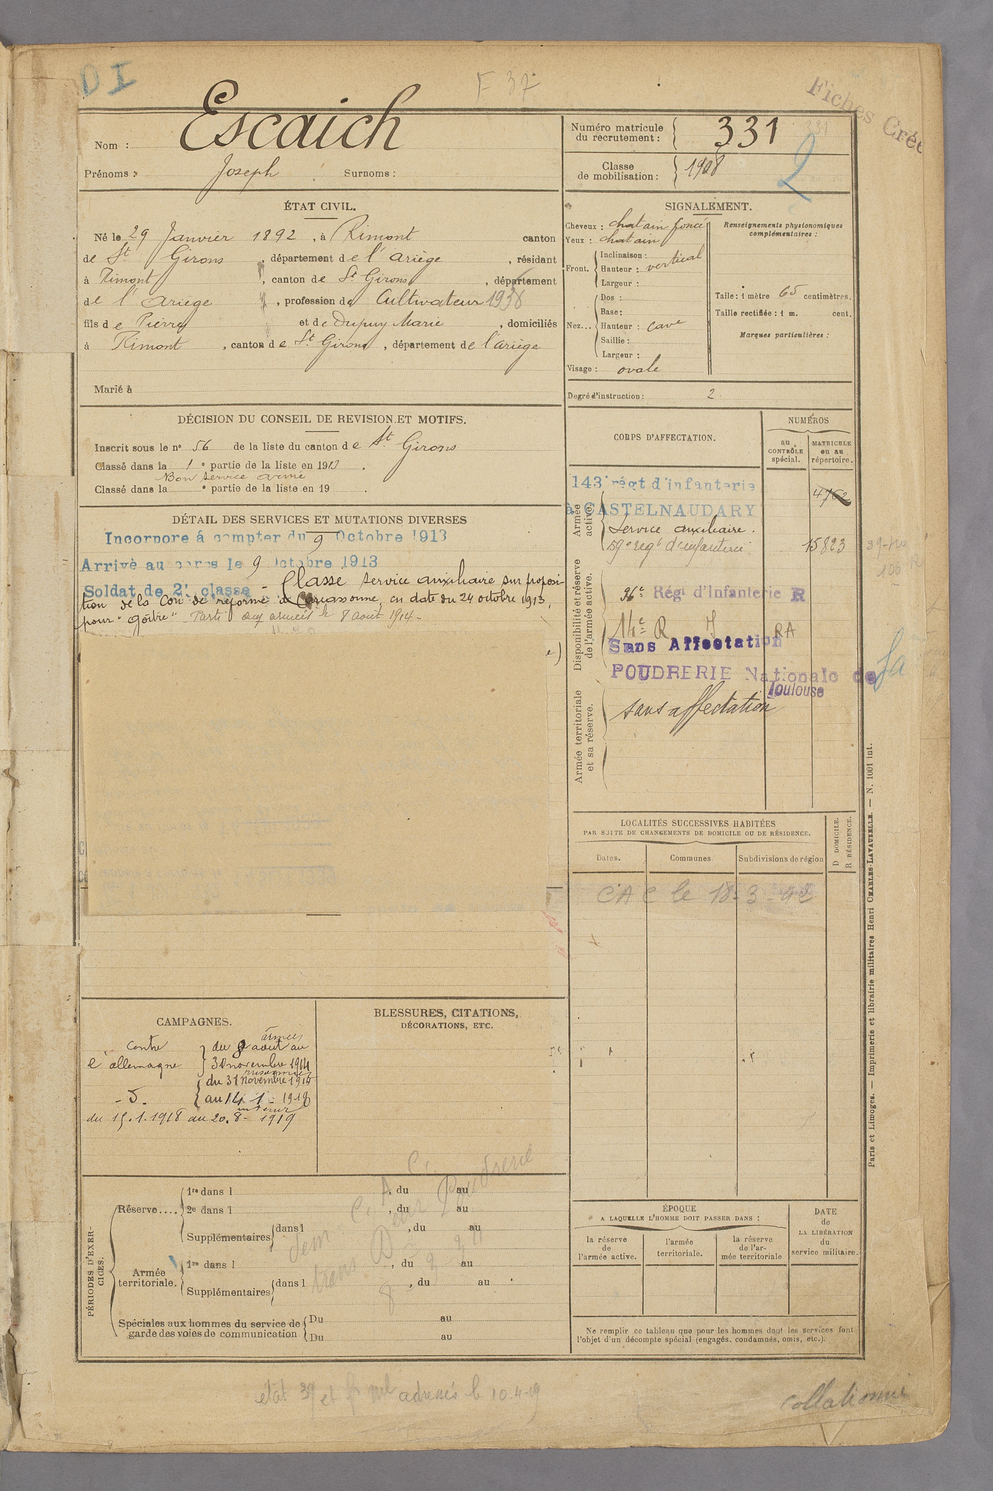 DI
F 37
Fiches Créé
Nom : Escaich
Prénoms : Joseph Surnoms :
Numéro matricule
du recrutement : 331
Classe
de mobilisation : 1908
2
ÉTAT CIVIL.
Né le 29 Janvier 1892, à Rimont canton
de St Girons, département de l'Ariège, résidant
à Rimont, canton de St Girons, département
de l'Ariège, profession de Cultivateur 1938
fils de Pierre et de Dupuy Marie, domiciliés
à Rimont, canton de St Girons, département de l'ariège
Marié à
SIGNALEMENT.
Cheveux : chatain foncé
Yeux : chatain
Front. Inclinaison :
Hauteur : vertical
Largeur :
Nez... Dos :
Base :
Hauteur : cave
Saillie :
Largeur :
Visage : ovale
Renseignements physionomiques
complémentaires :
Taille : 1 mètre 65 centimètres.
Taille rectifiée : 1 m. cent.
Marques particulières :
Degré d'instruction : 2
DÉCISION DU CONSEIL DE REVISION ET MOTIFS.
Inscrit sous le n° 56 de la liste du canton de St Girons
Classé dans la 1e partie de la liste en 1913.
Bon service armé
Classé dans la e partie de la liste en 19 .
DÉTAIL DES SERVICES ET MUTATIONS DIVERSES
Incorporé à compter du 9 Octobre 1913
Arrivé au corps le 9 Octobre 1913
Soldat de 2e classe - Classé service auxiliaire sur proposi-
tion de la Con de réforme de Carcassonne, en date du 24 octobre 1913,
pour "goître" Parti aux armées le 8 août 1914 -
CORPS D'AFFECTATION.
NUMÉROS
au
CONTRÔLE
spécial.
MATRICULE
ou au
répertoire.
Armée
active.
143e régt d'infanterie
à CASTELNAUDARY
Service auxiliaire.
59e regt d'infanterie 15823
Disponibilité et réserve
de l'armée active.
96e Régt d'Infanterie R
Sans Affectation RA
POUDRERIE Nationale de
Toulouse
Armée territoriale
et sa réserve.
sans affectation
LOCALITÉS SUCCESSIVES HABITÉES
PAR SUITE DE CHANGEMENTS DE DOMICILE OU DE RÉSIDENCE.
Dates.
Communes.
Subdivisions de région
D DOMICILE.
R RÉSIDENCE.
CAC le 18-3-92
CAMPAGNES.
contre
l'allemagne
armées
du 8 août au
30 novembre 1914
du 31 novembre 1914
au 14-1-1918
du 15.1.1918 au 20.8-1919
BLESSURES, CITATIONS,
DÉCORATIONS, ETC.
PÉRIODES D'EXER-
CICES.
Réserve....
1re dans l , du au
2e dans l , du au
Supplémentaires dans l , du au
Armée
territoriale.
1re dans l , du au
Supplémentaires dans l , du au .
Spéciales aux hommes du service de
garde des voies de communication
Du au
Du au
ÉPOQUE
A LAQUELLE L'HOMME DOIT PASSER DANS :
la réserve
de
l'armée active.
l'armée
territoriale.
la réserve
de l'ar-
mée territoriale
DATE
de
LA LIBÉRATION
du
service militaire.
Ne remplir ce tableau que pour les hommes dont les services font
l'objet d'un décompte spécial (engagés, condamnés, omis, etc.).
Paris et Limoges. — Imprimerie et librairie militaires Henri CHARLES-LAVAUZELLE. — N. 1001 int.
adressés le 10.4.19
collationné